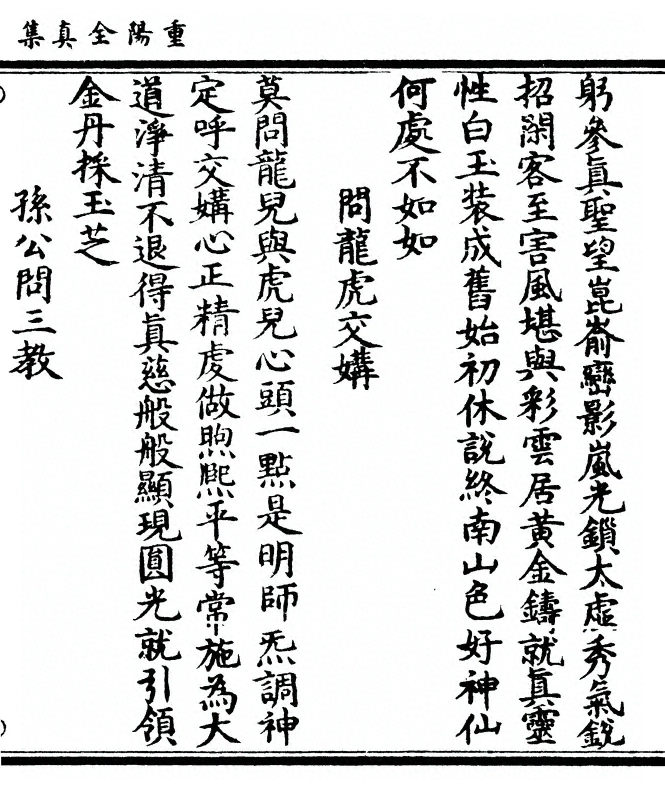 重陽全真集
躬參眞聖望崑崙巒影嵐光鎖太虛秀氣銳
招閑客至害風堪與彩雲居黃金鑄就眞靈
性白玉裝成舊始初休說終南山色好神仙
何處不如如
問龍虎交媾
莫問龍兒與虎兒心頭一點是明師炁調神
定呼交媾心正精虔做煦熈平等常施為大
道淨清不退得眞慈般般顯現圓光就引領
金丹採玉芝
孫公問三教